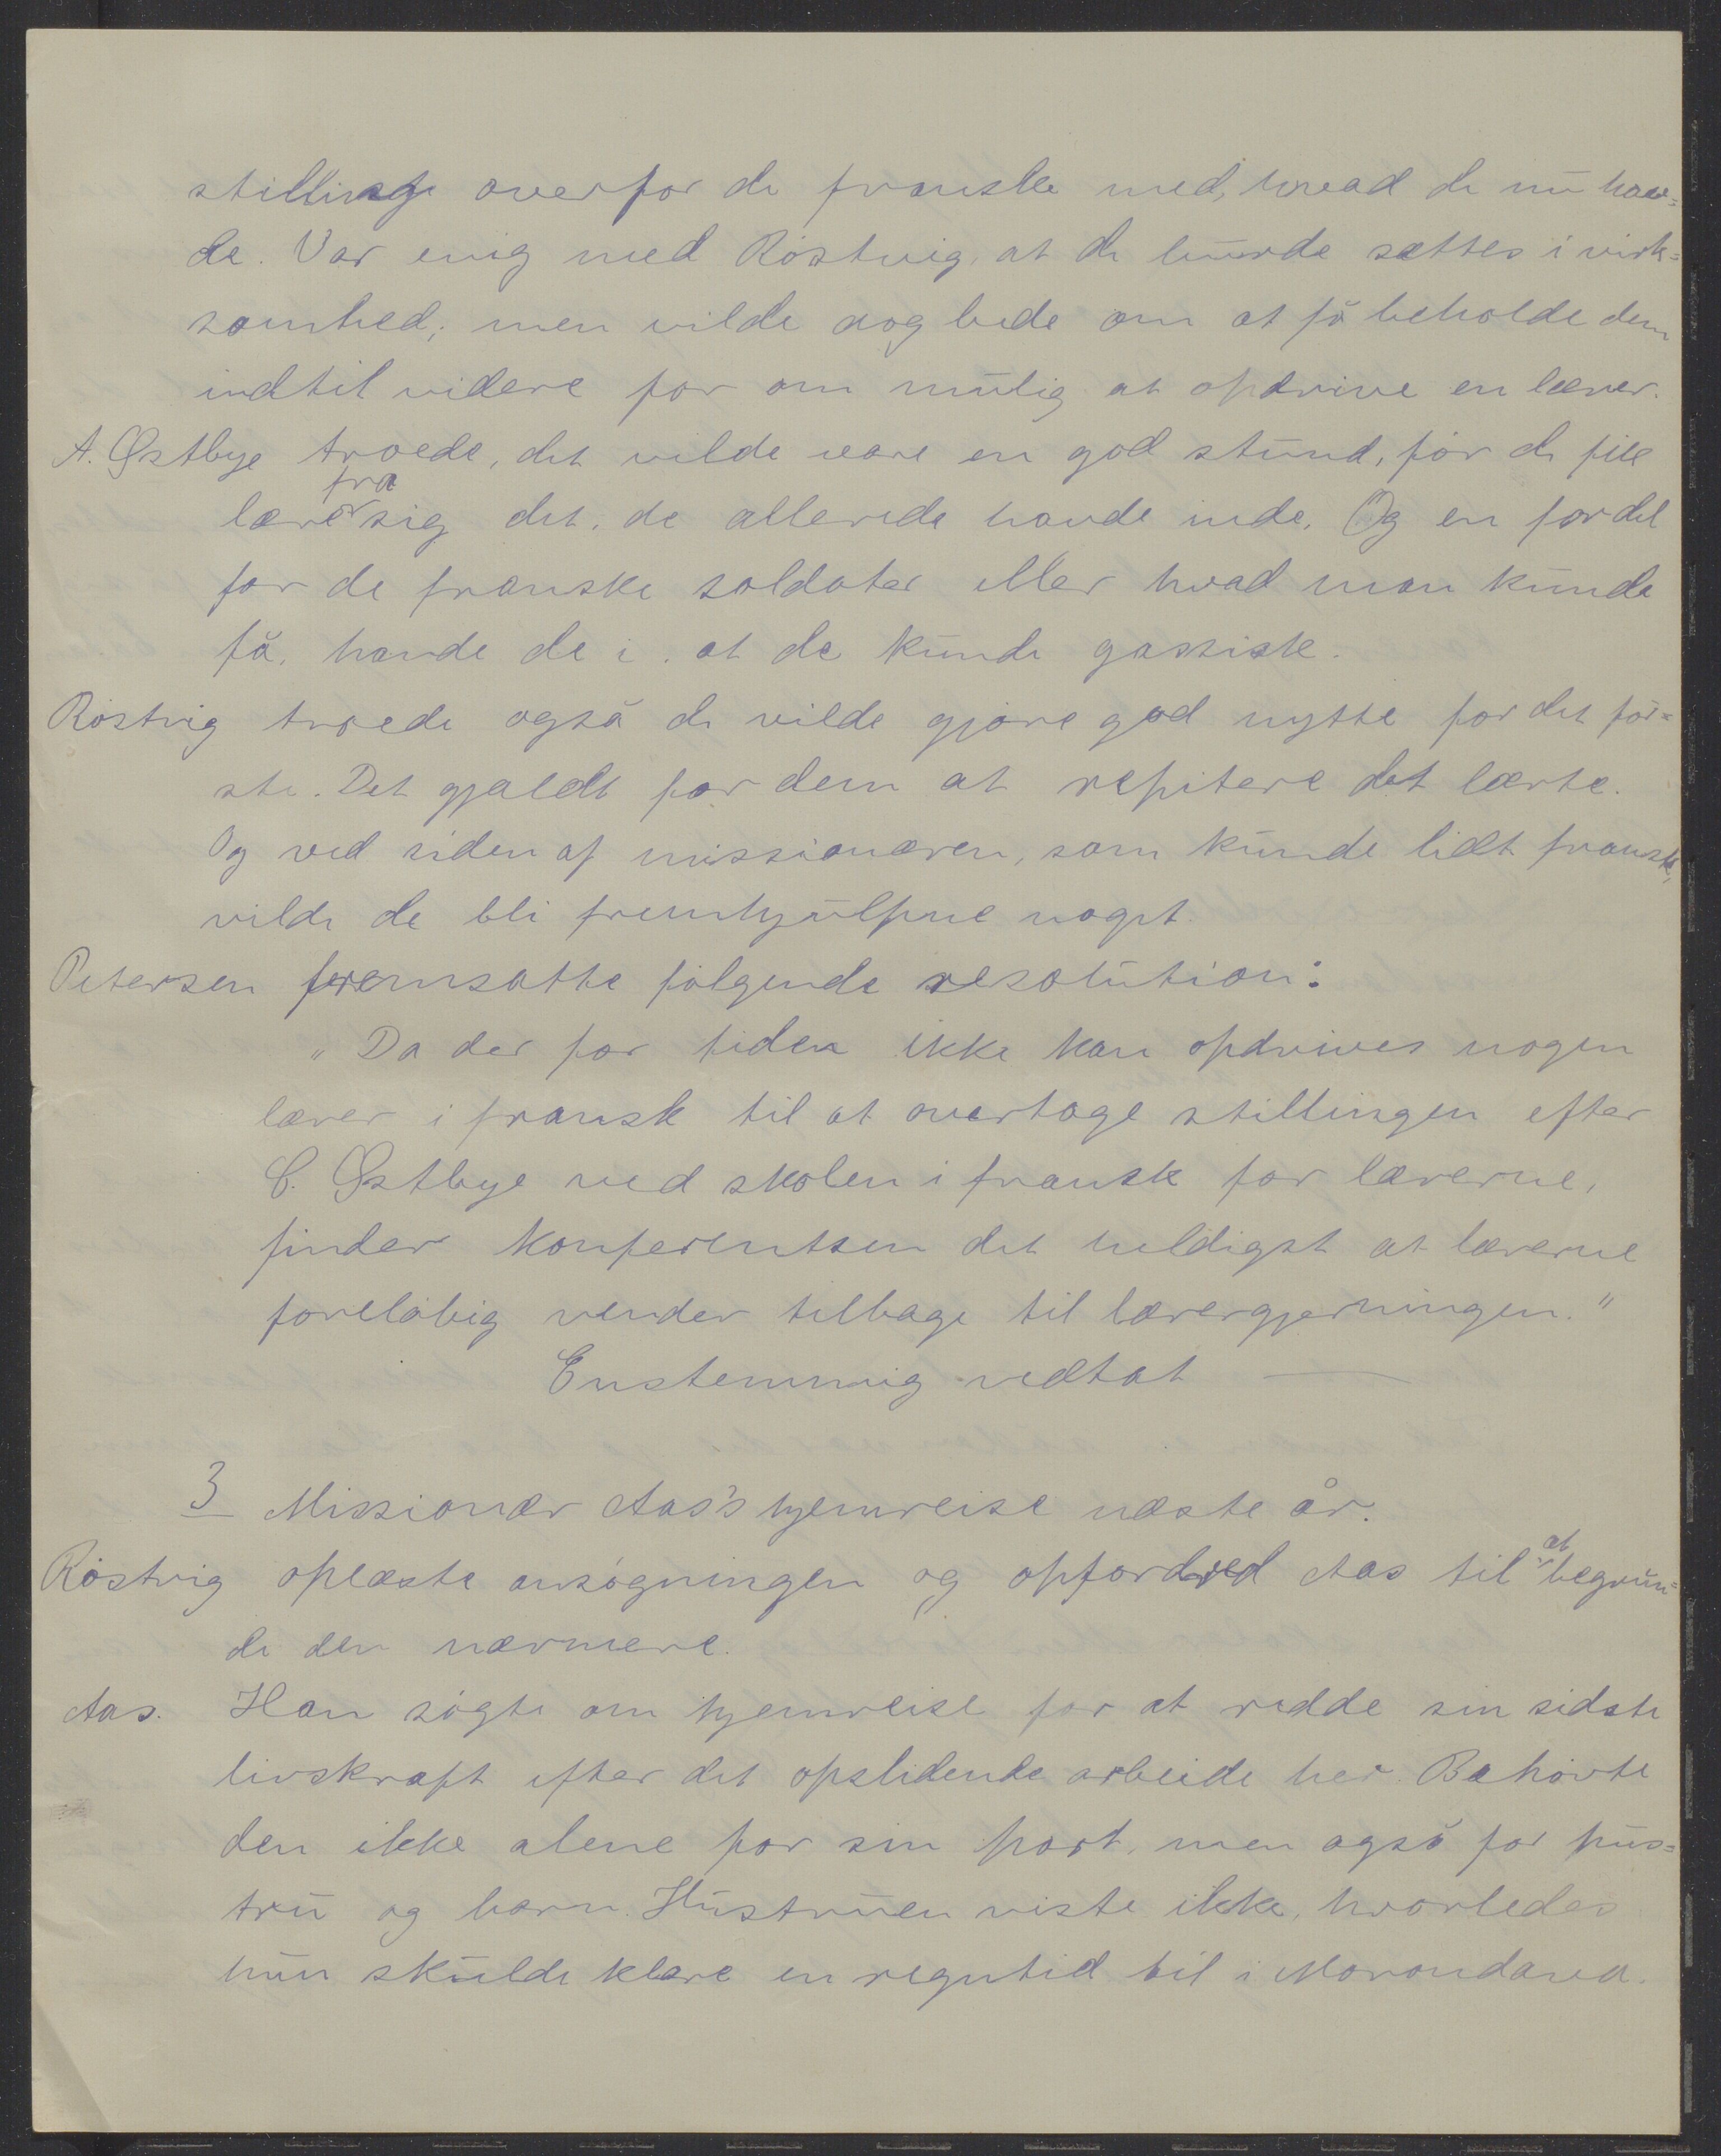 stillinge overfor de franske med, hvad de nu hav=
de. Var enig med Röstvig, at de burde sættes i virk=
somhed; men vilde dog bede om at få beholde dem
indtil videre for om mulig at opdrive en lærer.
A. Østbye troede, det vilde være en god stund, før de fik
lære fra sig det, de allerede havde inde. Og en fordel
for de franske soldater eller hvad man kunde
få, havde de i, at de kunde gassisk.
Röstvig troede også de vilde gjøre god nytte for det för=
ste. Det gjaldt for dem at repitere det lærte.
Og ved siden af missionæren, som kunde lidt fransk,
vilde de bli fremhjulpne noget.
Petersen fremsatte følgende resolution:
"Da der for tiden ikke kan opdrives nogen
lærer i fransk til at overtage stillingen efter
C. Østbye ved skolen i fransk for lærerne,
finder konferentsen det heldigst at lærerne
foreløbig vender tilbage til lærergjerningen."
Enstemmig vedtat
3 Missionær Aas's hjemreise næste år.
Röstvig oplæste ansøgningen og opfordred Aas til at begrun=
de den nærmere.
Aas. Han søgte om hjemreise for at redde sin sidste
livskraft efter det opslidende arbeide her. Behøvte
den ikke alene for sin part, men også for hus=
tru og barn. Hustruen viste ikke, hvorledes
hun skulde klare en regntid til i Morondava.